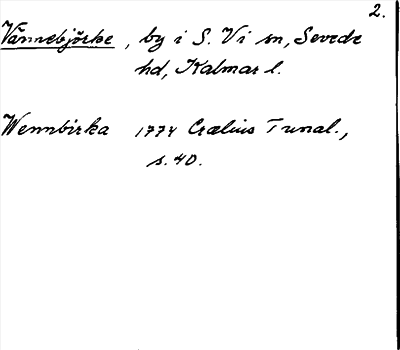 2.
Vännebjörke, by i S. Vi sn, Sevede
hd, Kalmar l.
Wennbirka 1774 Crælius Tunal.,
s. 40.